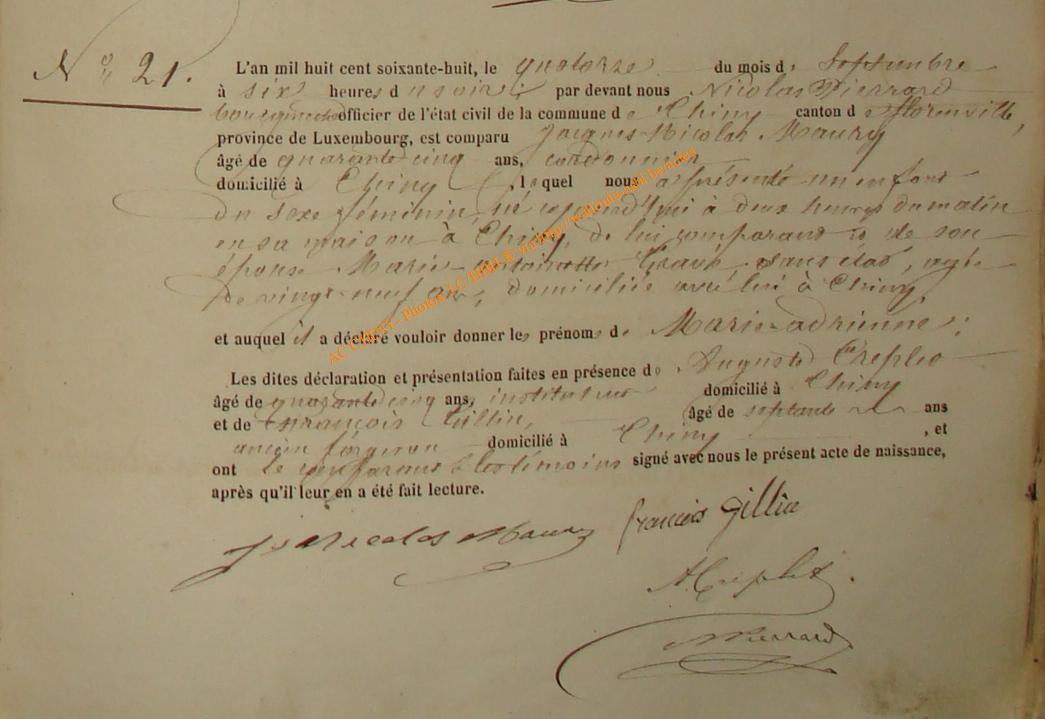 N° 21.
L'an mil huit cent soixante-huit, le quatorze du mois de Septembre
à six heures du soir; par devant nous Nicolas Pierrard
bourgmestre officier de l'état civil de la commune de Chiny canton de florenville,
province de Luxembourg, est comparu Jacques-Nicolas Maury
âgé de quarante cinq ans, cordonnier
domicilié à Chiny, lequel nous a présenté un enfant
du sexe féminin, né aujourd'hui à deux heures du matin
en sa maison à Chiny, de lui comparant et de son
épouse Marie antoinette sans état, agée
de vingt-neuf ans, domiciliée avec lui à Chiny,
et auquel il a déclaré vouloir donner les prénoms de Marie-adrienne;
Les dites déclaration et présentation faites en présence de Auguste
âgé de quarante cinq ans, instituteur domicilié à Chiny
et de François Gillin, âgé de septante ans
ancien forgeron domicilié à Chiny, et
ont le comparant & les témoins signé avec nous le présent acte de naissance,
après qu'il leur en a été fait lecture.
Js Nicolas Maury françois Gillin
Pierrard
AC CHINY - Photos LC HBM